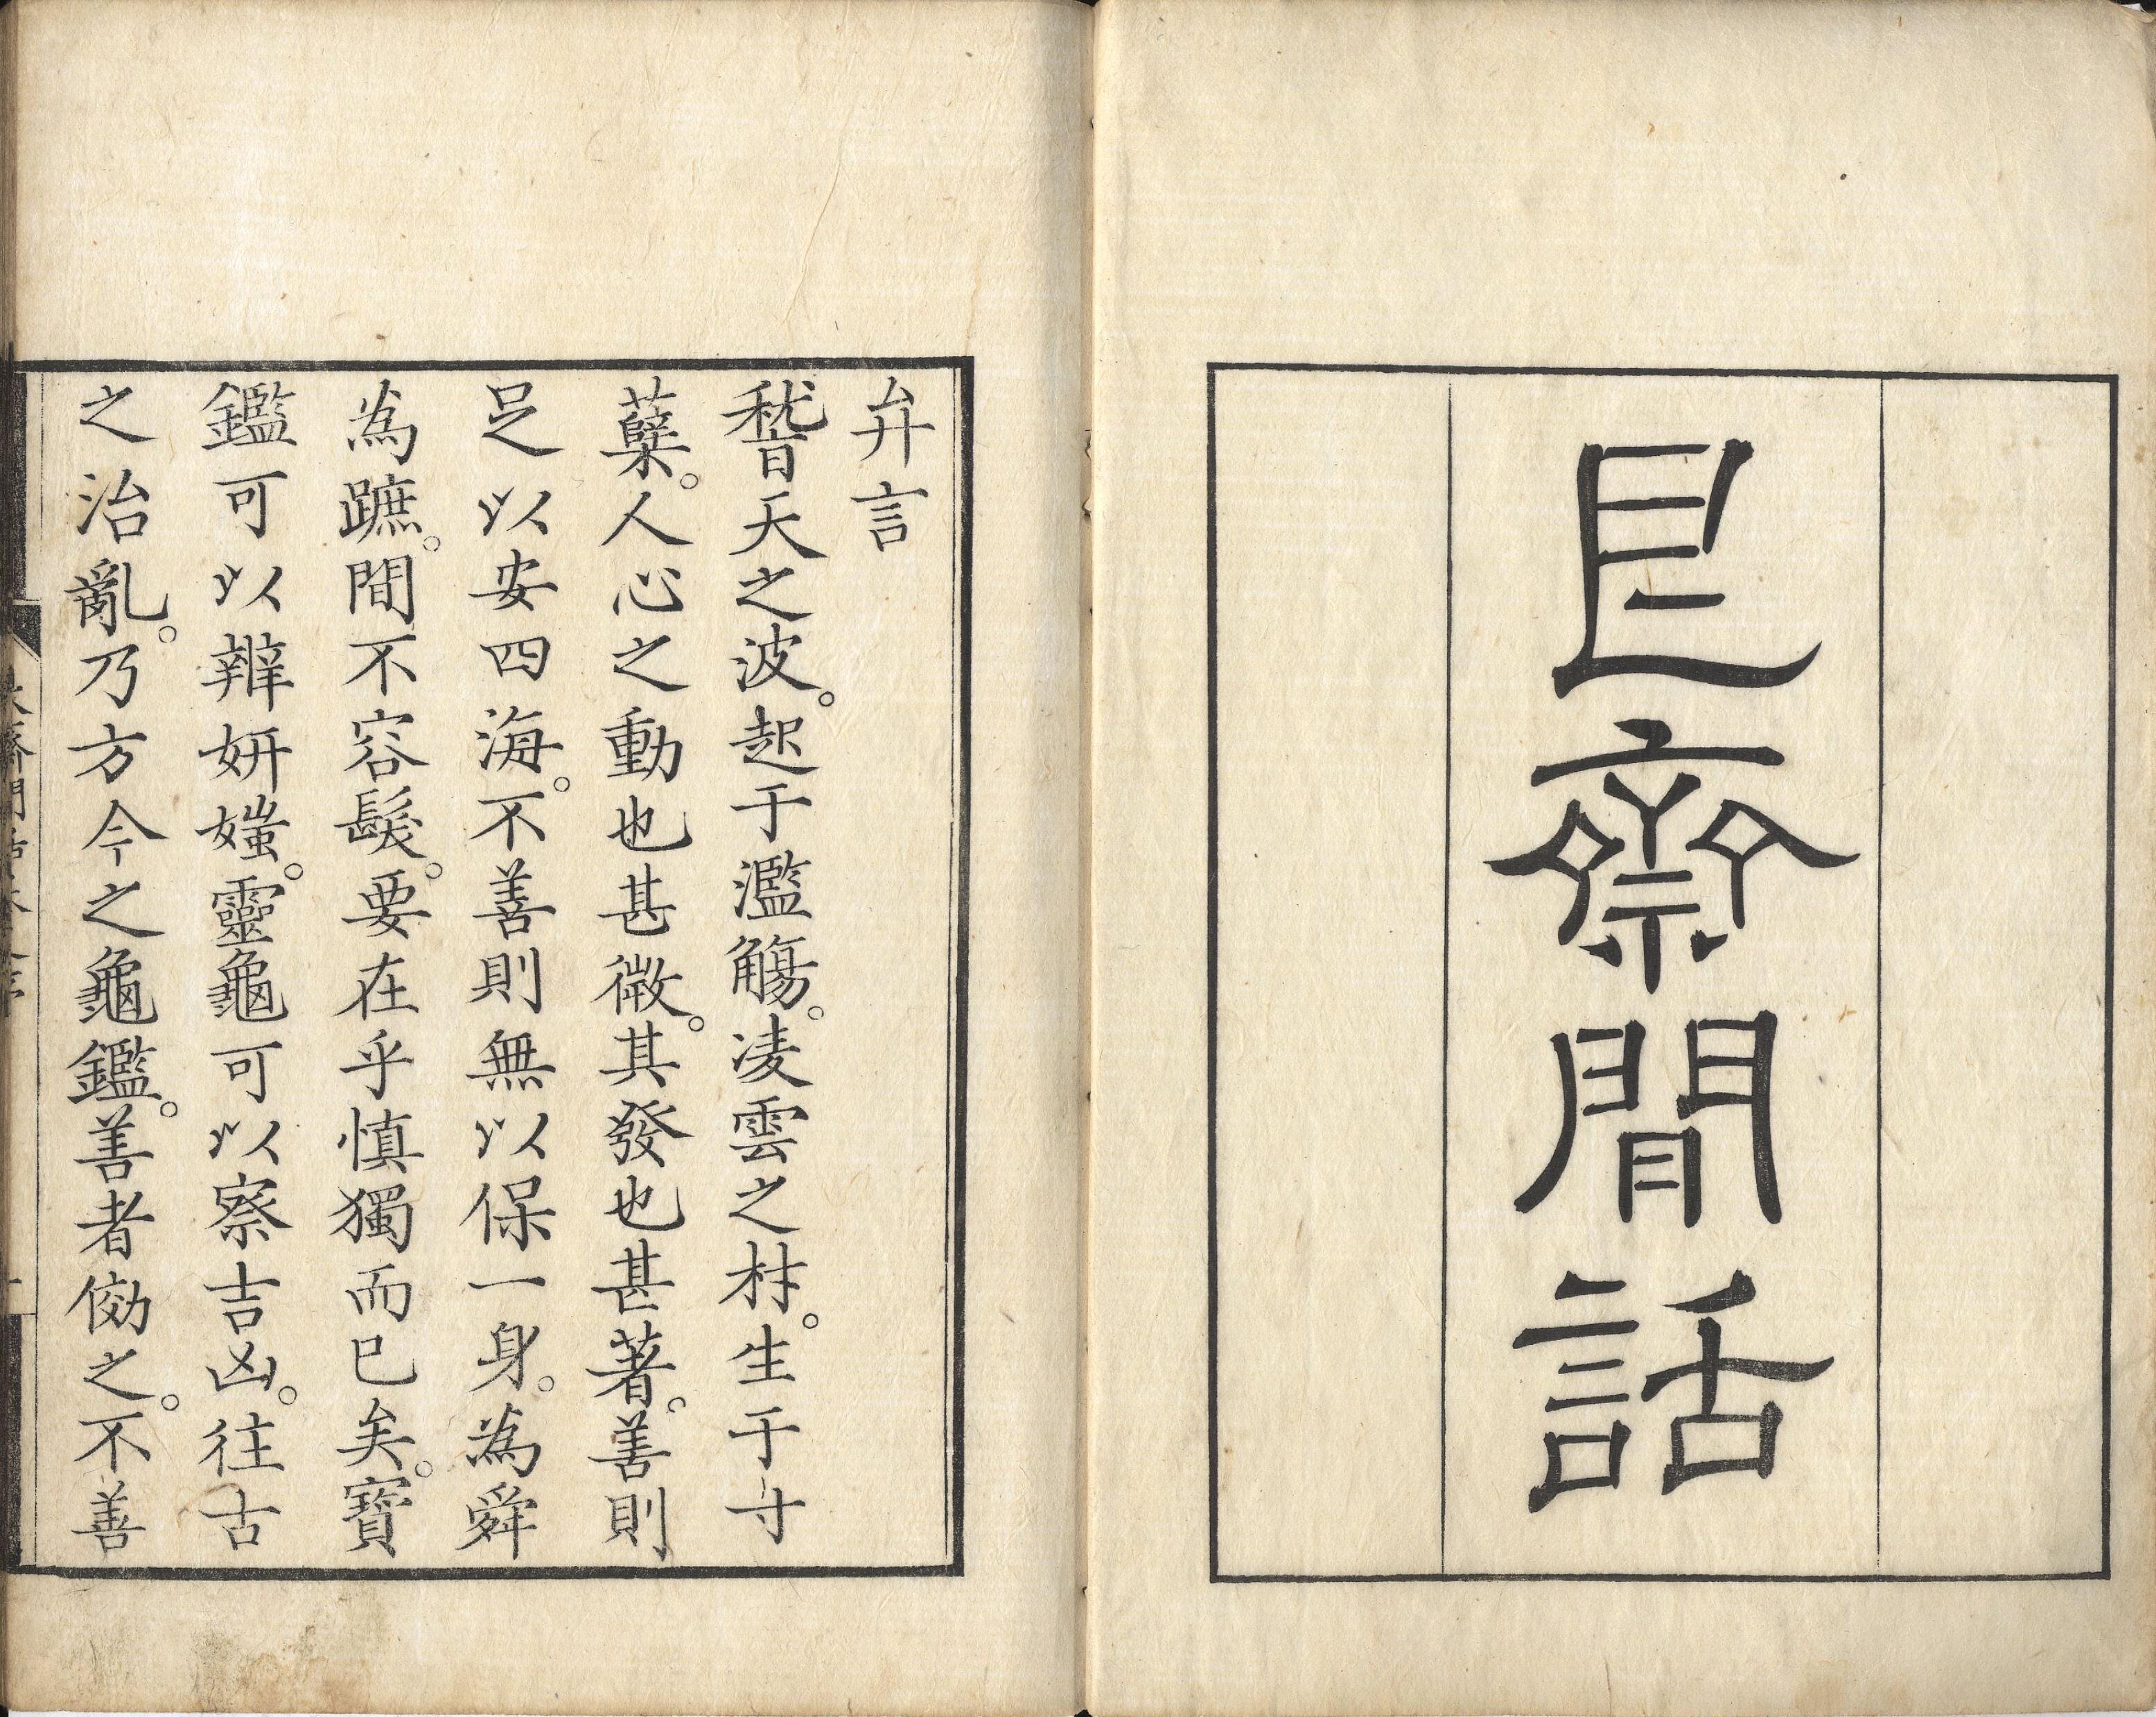 艮齋間話
弁言
稽天之波。起于濫觴。凌雲之材。生于寸
蘖。人心之動也甚微。其發也甚著。善則
足以安四海。不善則無以保一身。為舜
為蹠。間不容髮。要在乎慎獨而已矣。寶
鑑可以辨妍媸。靈龜可以察吉凶。往古
之治亂。乃方今之龜鑑。善者俲之。不善